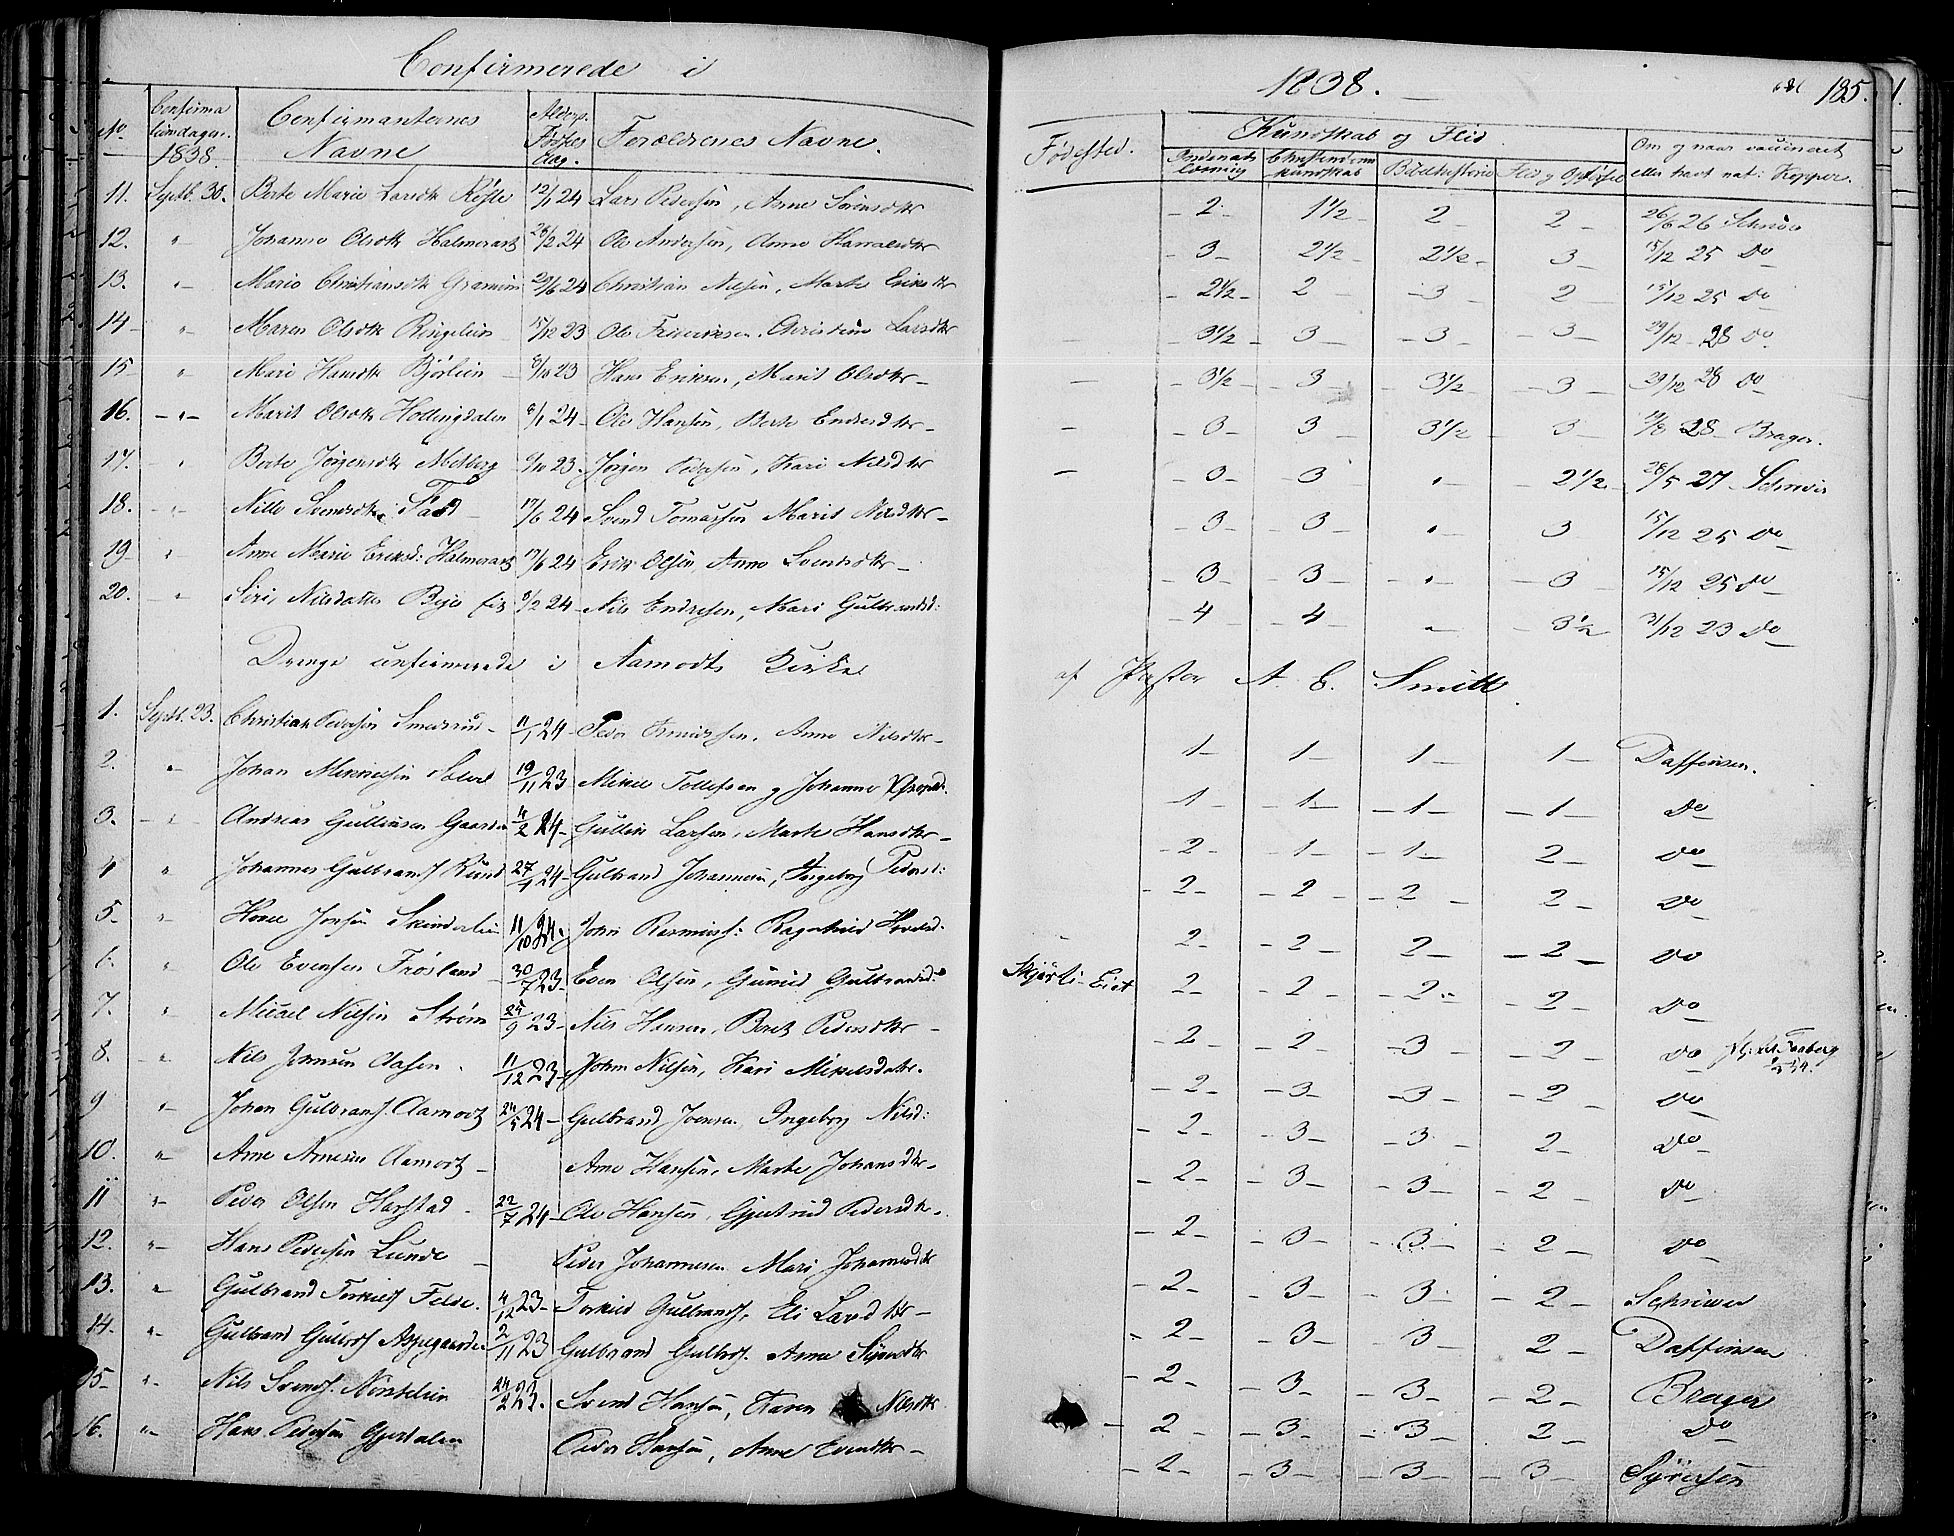 Confirmerede i 1838. 185.
No. Confirmationsdagen. 1838. Confirmanternes Navne Alder, Fødselsdag. Forældrenes Navne. Fødested. Kundskab og Flid. Om og naar vaccineret
Christendomskundskab Bibelhistorie Flid og eller havt nat: Kopper.
11. Septb. 30. Berte Marie 12/1 24 Lars Pedersen, Anne Sørensdtr - 2 - 1½ 2 - 2 - 26/6 26 Schriver
12. " Johanne Olsdtr Halmerast 28/2 24 Ole Andersen, Anne - 3 - 2½ - 2½ - 3 - 15/12 25 Do
13. " Marie Christiansdtr 29/6 24 Christian Nilsen, Marte Eriksdtr - 2½ - 2 - 3 - 2 - 15/12 25 Do
14 " Maren Olsdtr Ringelien 15/12 23 Ole Christine Larsdtr - 3½ - 3 - 3 - 3 - 29/12 28 Do
15 " Mari Hansdtr Bjørlien 8/10 23 Hans Eriksen, Marit Olsdtr - 3½ - 3 - 3½ - 3 - 29/12 28 Do
16. " Marit Olsdtr Hollingdalen 8/1 24 Ole Hansen, Berte Endresdtr - 3 - 3 - 3½ - 3 - 19/8 28 Brager.
17. " Berte Jørgensdtr 23. Jørgen Pedersen, Kari Nilsdtr - 3 - 3 " - 2½ 28/5 27 Schriver
18. " Nille Svendsdtr 17/6 24 Svend Tomassen Marit Nilsdtr - 3 - 3 - " 3 15/12 25 Do
19 " Anne Marie Eriksd: Halmerast 17/6 24 Erik Olsen, Anne Svendsdtr - 3 - 3 - " - 3 15/12 25 Do
20. " Siri Nilsdatter 24 Nils Endresen, Mari Gulbrandsd: - 4 - 4 - " - 3½ 31/12 23 Do
Drenge confirmerede i Aamodts Kirke af Pastor A. E. Smitt.
1. Septb. 23. Christian Pedersen Smedsrud 11/1 24 Peder Knudssen, Anne Nilsdtr 1 - 1 - 1 - 1 - Daffinsen.
2. " Johan Mikkelsen 19/11 23 Mikkel Tollefsen og Johanne - 1 - 1 - 1 - 1 - Do
3. " Andreas Gullixsen Gaarden 4/2 24 Gullik Larsen, Marte Hansdtr - 2 - 1 - 1 - 2 - Do
4 " Johannes Gulbrans. Rund 27/1 24 Gulbrand Johannesen, Ingeborg Pedersd: - 2 - 2 - 2 - 2 - Do
5. " Jonsen Skinderlien 11/10 24. John Rasmuss: Ragnhild 2 - 2 - 2 - 2 - Do
6. " Ole Evensen Frøsland 30/7 23 Even Olsen, Gunild Gulbrandsd: Skjørli-Eiet 2 - 2 - 2 - 2 - Do
7. " Micael Nilsen Strøm 25/9 23 Nils Hansen, Berit Pedersdtr - 2 - 2 - 3 - 2 - Do
8. " Nils Jonsen Aasen 11/12 23 John Nilsen, Kari Mikelsdatr. - 2 - 3 - 3 - 2 - Do
9 " Johan Gulbrans. Aamodt 24/5 24 Gulbrand Joensen, Ingebrg Nilsd: - 2 - 3 - 3 - 2 - Do
10. " Arne Arnesen Aamodt Arne Hansen, Marte Johansdtr - 2 - 3 - 3 - 2 - Do
11 " Peder Olsen Harstad 22/7 24 Ole Hansen, Gjertrud Pedersdtr. - 2 - 3 - 3 - 2 - Do
12. " Hans Pedersen Lunde Peder Johannesen Mari Johannesdtr - 2 - 3 - 3 - 2 - Schriver
13. " Gulbrand Torkils. Felde. 4/12 23 Torkild Gulbrands. Eli Larsdtr - 2 - 3 - 3 - 2 Daffinsen
14. " Gulbrand Gulbrs. Aspegaarden 2/11 23 Gulbrand Gulbrs. Anne - 2 - 3 - 3 - 2 - Brager
15 " Nils Svends. Norstelien 24/2 23. Svend Hansen, Karen Nilsdtr - 2 - 3 - 3 - 2 - Do
16. " Hans Pedersen Gjerdalen Peder Hansen, Anne Evensdtr - 2 - 3 - 3 - 3 - Syversen